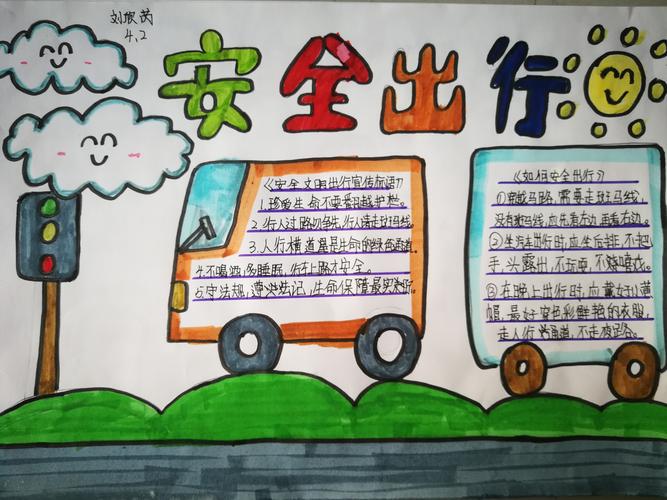 刘欣芮
4.2
安全出行
《安全文明出行宣传标语》
1.珍爱生命不要翻越护栏。
2.行人过路勿争先,行人请走斑马线。
3.人行横道是生命的绿色通道。
4.不喝酒,多睡眠,行车上路才安全。
5.守法规,遵
记,生命保障最实
《如何安全出行》
①穿越马路,需要走斑马线,
没有斑马线,应先看左边,再看右边。
②坐汽车出行时,应坐后排,不把
手、头露出,不玩耍,不嬉戏。
③在晚上出行时,应戴好小黄
帽,最好穿色彩鲜艳的衣服,
走人行
通道,不走夜路。